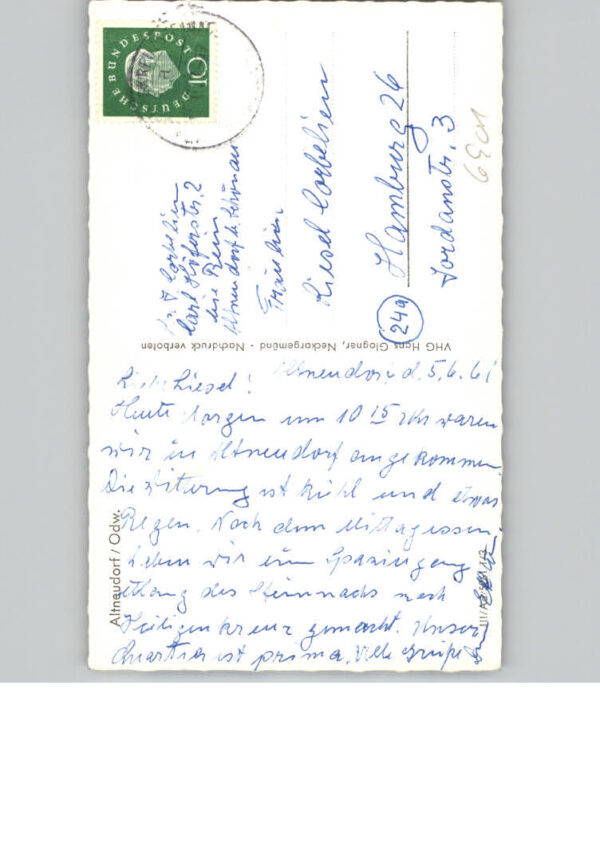 DEUTSCHE BUNDESPOST
10
Corbelien
Carl Höferstr. 2
bei Rein
Altneudorf b. Schönau
Fräulein
Liesel Corbelien
(24a) Hamburg 26
Jordanstr. 3
VHG Hans Glogner, Neckargemünd - Nachdruck verboten
Altneudorf / Odw.
Altneudorf, d. 5.6.61
Liebe Liesel!
Heute Morgen um 10 15 Uhr waren
wir in Altneudorf angekommen.
Die Witterung ist kühl und etwas
Regen. Nach dem Mittagessen
haben wir ein Spaziergang
entlang des Steinachs nach
Heiligenkreuz gemacht. Unser
Quartier ist prima. Viele Grüße